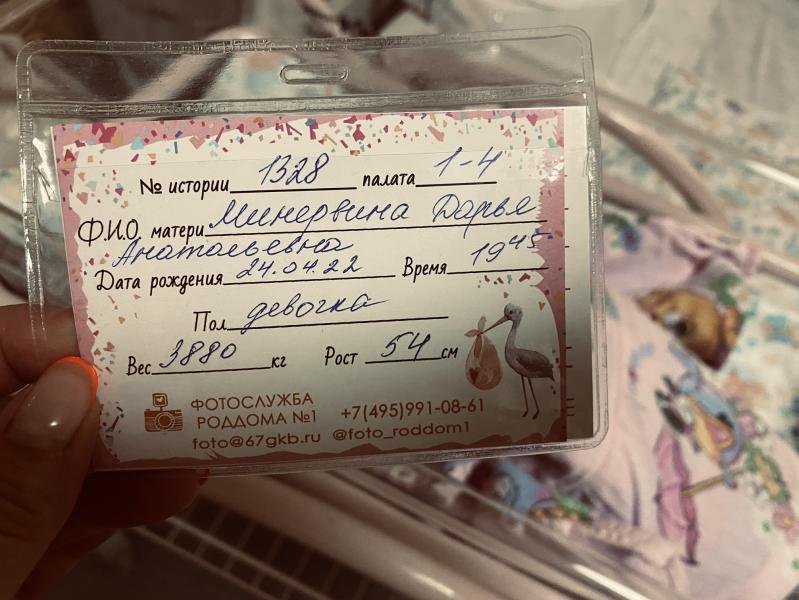 № истории 1328 палата 1-4
Ф.И.О. матери Минервина Дарья
Анатольевна
Дата рождения 24.04.22 Время 19 45
Пол девочка
Вес 3880 кг Рост 54 см
ФОТОСЛУЖБА
РОДДОМА №1 +7(495)991-08-61
foto@67gkb.ru @foto_roddom1